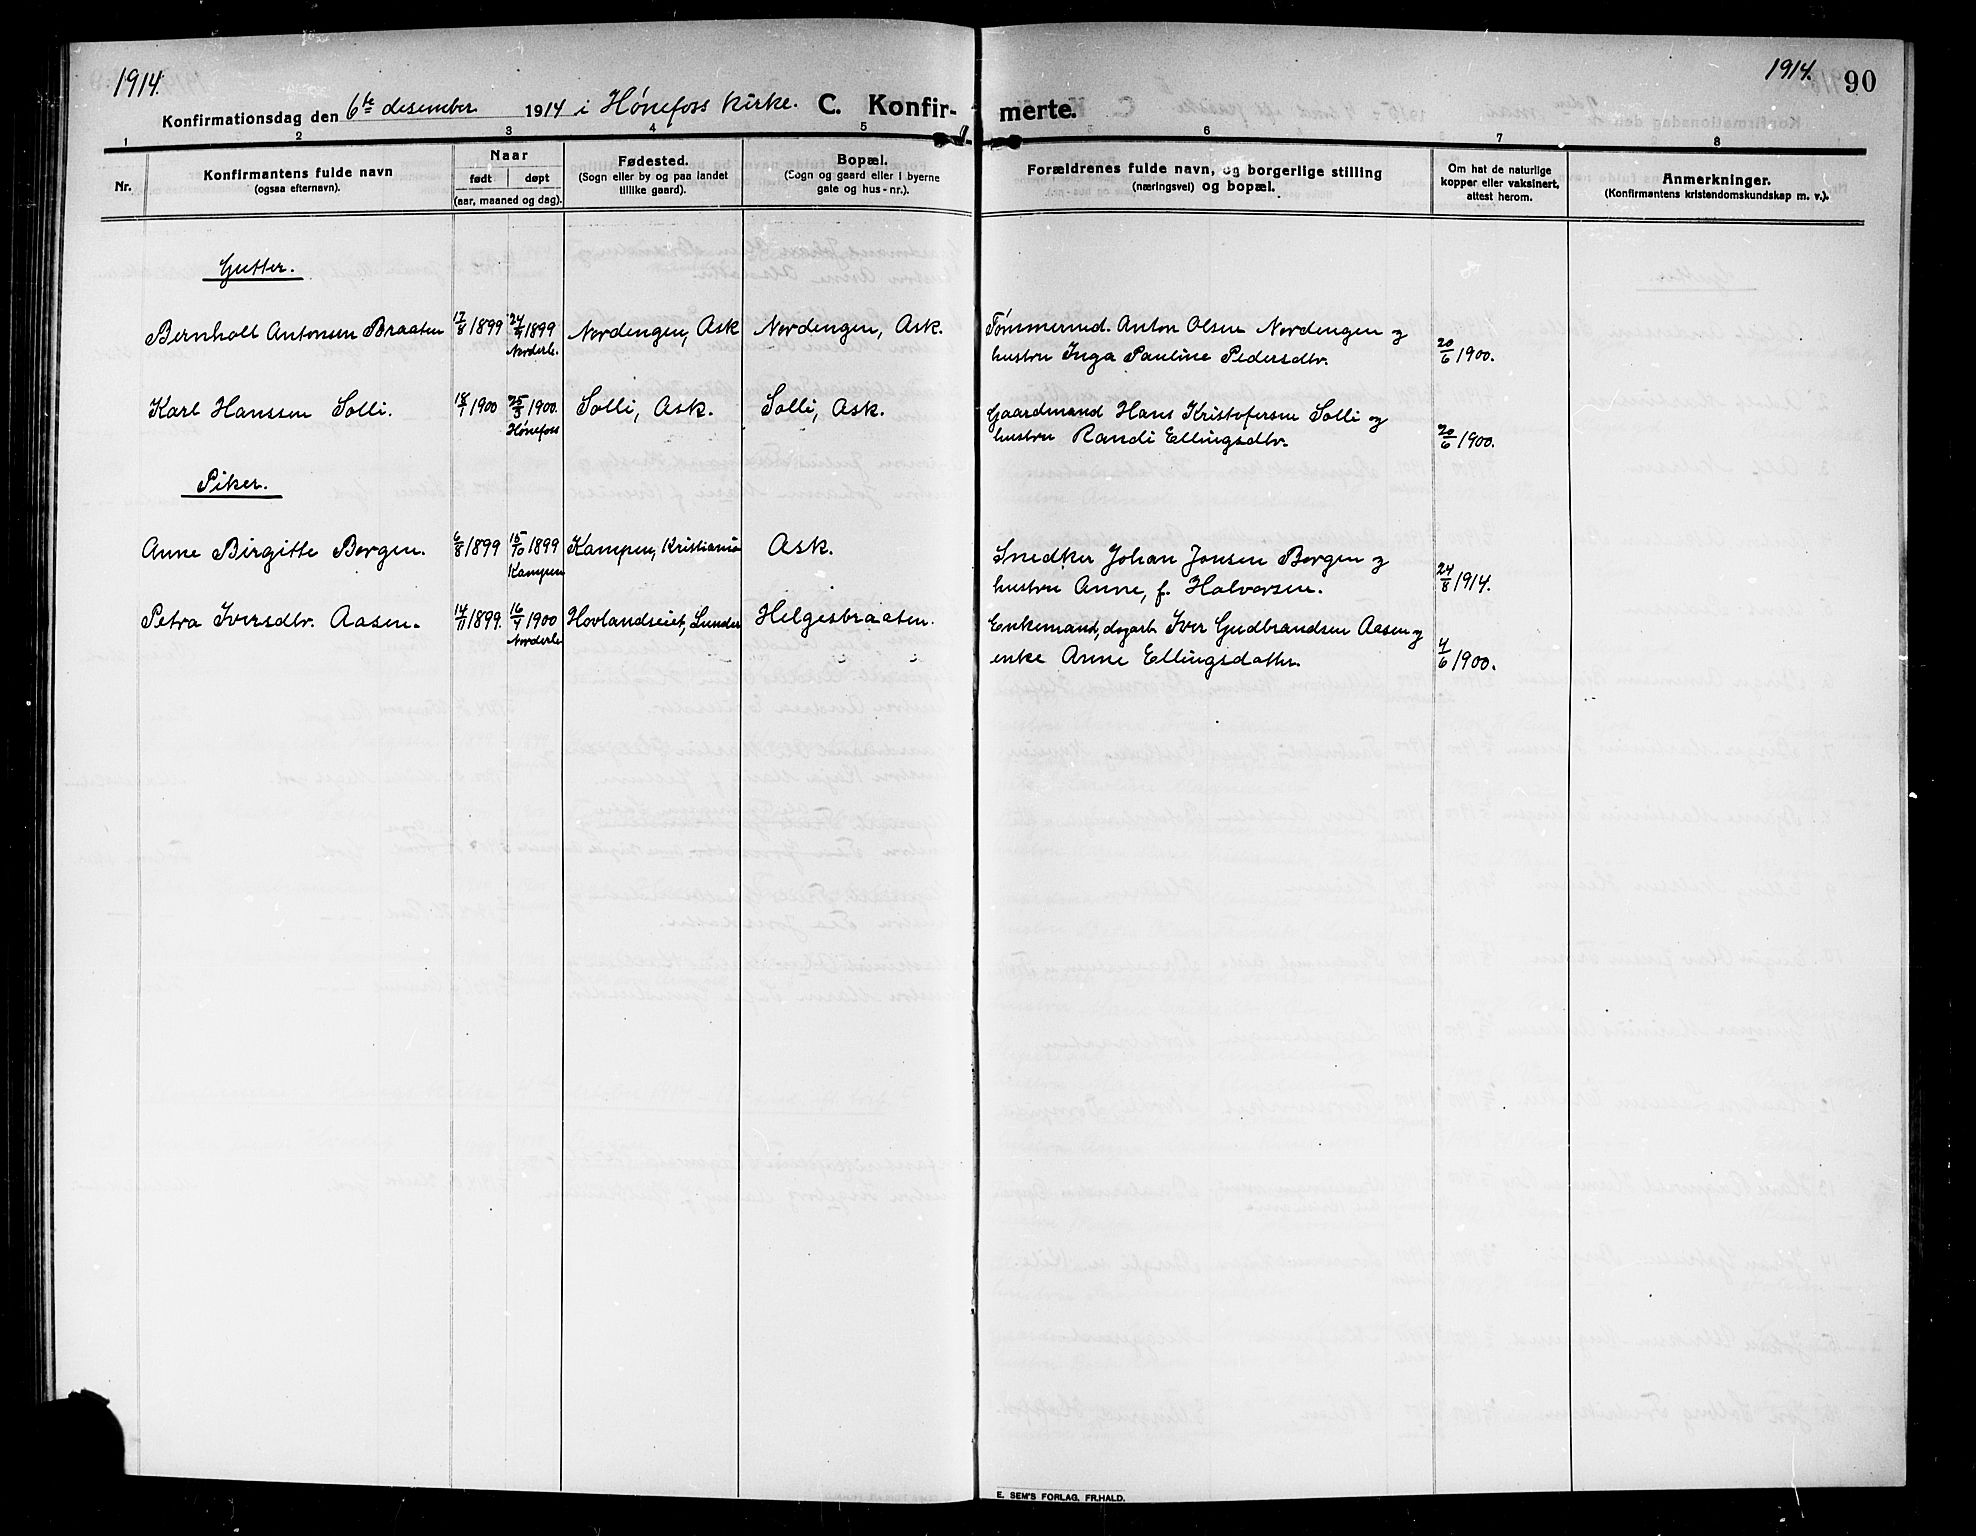 1914.
1914.
90
Konfirmationsdag den 6te desember 1914 i Hønefoss kirke. C. Konfir- merte.
1 2 3 4 5 6 7 8
Nr.
Konfirmantens fulde navn
(ogsaa efternavn).
Naar
født døpt
(aar, maaned og dag).
Fødested.
(Sogn eller by og paa landet
tillike gaard).
Bopæl.
(Sogn og gaard eller i byerne
gate og hus-nr.).
Forældrenes fulde navn, og borgerlige stilling
(næringsvei) og bopæl.
Om hat de naturlige
kopper eller vaksinert,
attest herom.
Anmerkninger.
(Konfirmantens kristendomskundskap m. v.).
Gutter.
Bernholt Antonsen Braaten 17/8 1899 24/9 1899 Nordengen, Ask Nordengen, Ask. Tømmermd. Anton Olsen Nordengen og
Norderh. hustru Inga Pauline Pedersdtr. 20/6 1900.
Karl Hanssen Solli. 18/1 1900 25/3 1900. Solli, Ask. Solli, Ask. Gaardmand Hans Kristofersen Solli og
Hønefoss hustru Randi Ellingsdtr. 20/6 1900.
Piker.
Anne Birgitte Borgen. 6/8 1899 15/10 1899 Kampen, Kristiania Ask. Snedker Johan Jonsen Borgen og
Kampen hustru Anne, f. Halvorsen. 24/8 1914.
Petra Iversdtr. Aasen. 14/11 1899. 16/4 1900 Hovlandseiet, Lunder Helgesbraaten. Enkemand, dagarb. Iver Gudbrandsen Aasen og
Norderh. enke Anne Ellingsdatter. 4/6 1900.
E. SEM'S FORLAG, FR.HALD.